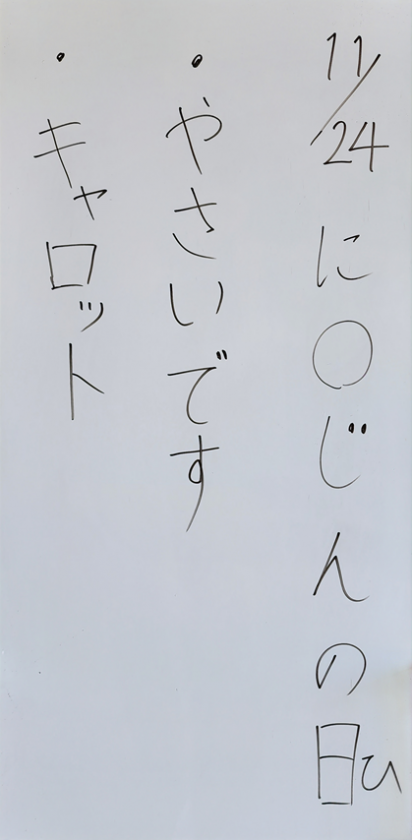 11/24に〇じんの日ひ
・やさいです
・キャロット